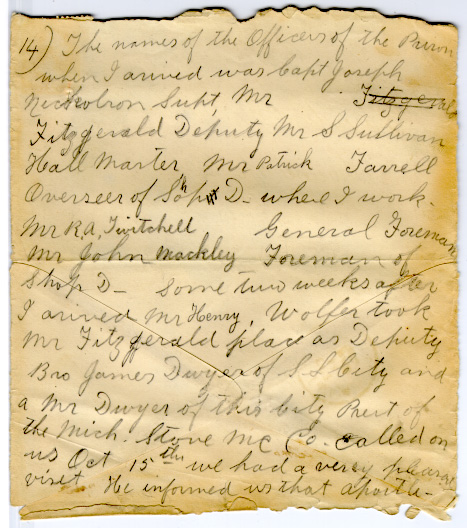 14) The names of the Officers of the Prison
when I arived was Capt Joseph
Nickolson Supt, Mr Fitzgerald
Fitzgerald Deputy Mr S Sullivan
Hall Master, Mr Patrick Farrell
Overseer of Shop D- where I work.
Mr R.A. Twitchell General Foreman
Mr John Mackley Foreman of
Shop D- Some two weeks after
I arived Mr Henry, Wolfer took
Mr Fitzgerald place as Deputy
Bro James Dwyer of S.L City and
a Mr Dwyer of this City Prest of
the Mich. Stove Mc Co. called on
us Oct 15th we had a verey pleasant
visit He informed us that apostle-